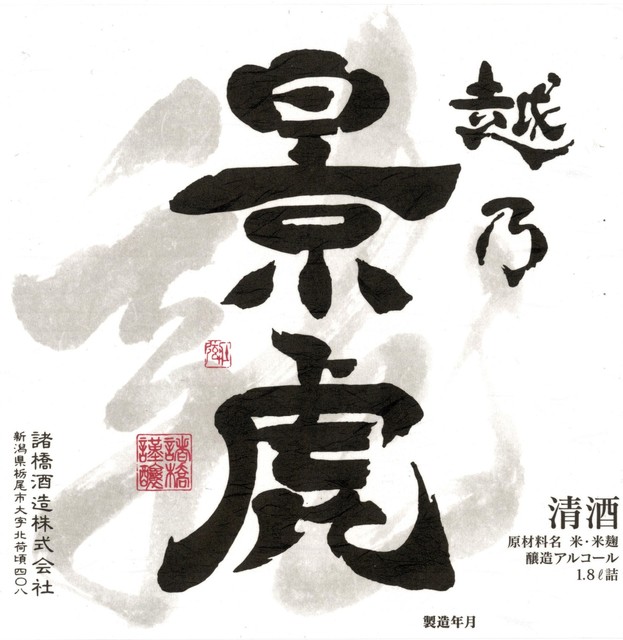 越乃
景虎
諸橋
謹醸
諸橋酒造株式会社
新潟県栃尾市大字北荷頃四〇八
清酒
原材料名 米・米麹
醸造アルコール
1.8ℓ詰
製造年月